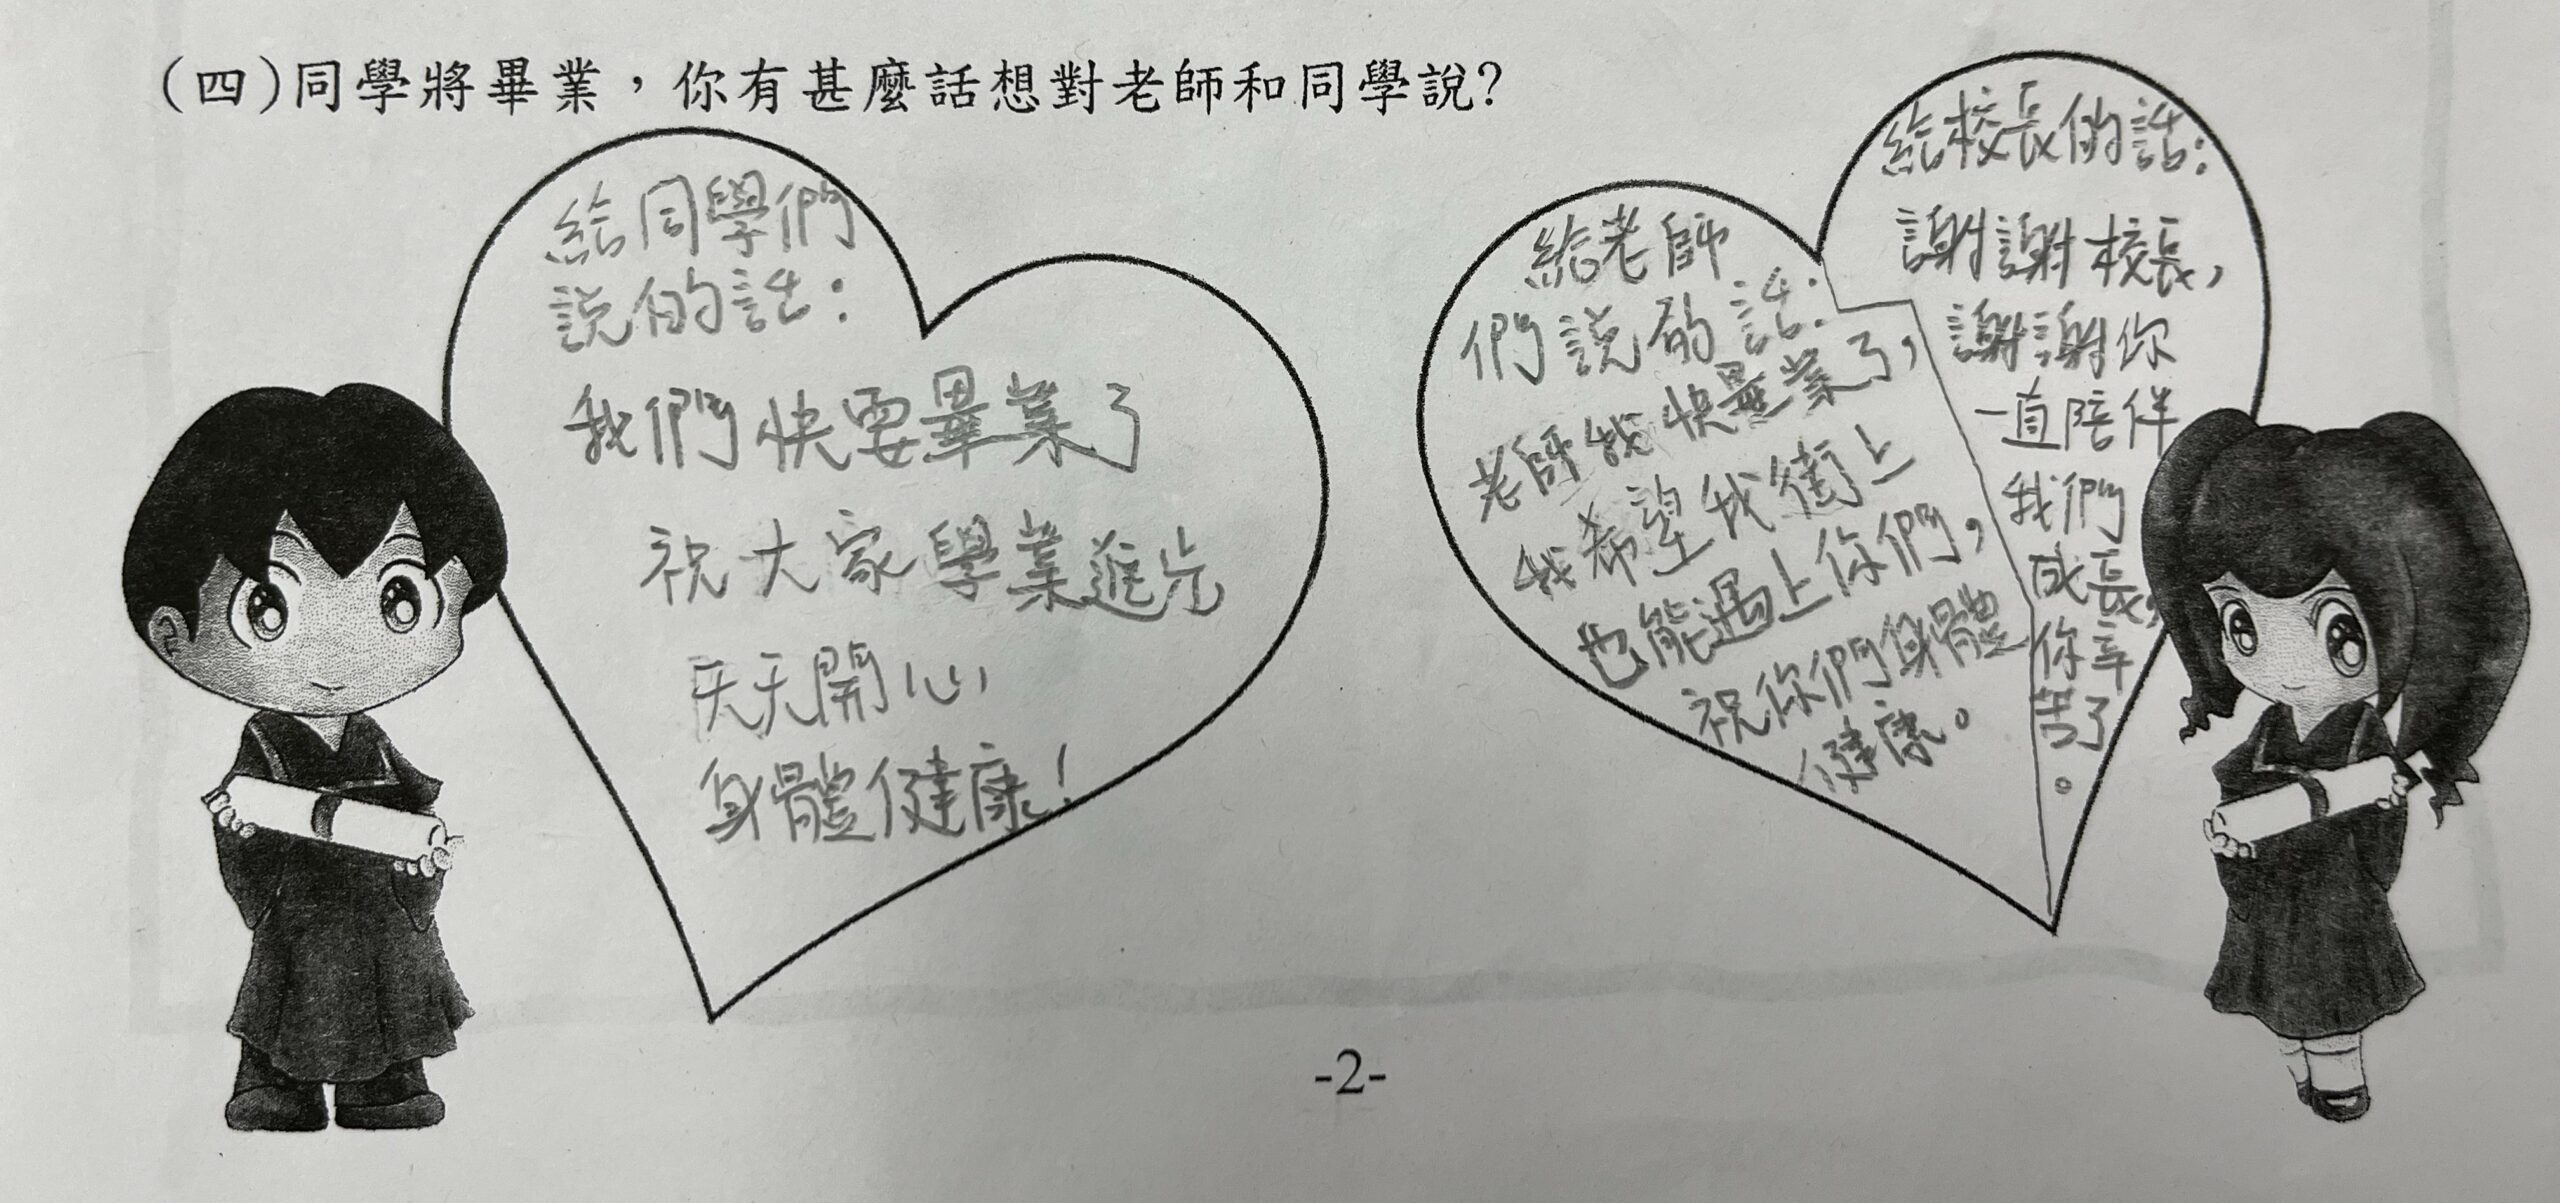 (四)同學將畢業，你有甚麼話想對老師和同學說?
給同學們
說的話：
我們快要畢業了
祝大家學業進步
天天開心，
身體健康！
給老師
們說的話：
老師我快畢業了，
我希望我街上
也能遇上你們，
祝你們身體
健康。
給校長的話：
謝謝校長，
謝謝你
一直陪伴
我們
成長，
你辛
苦了
。
-2-